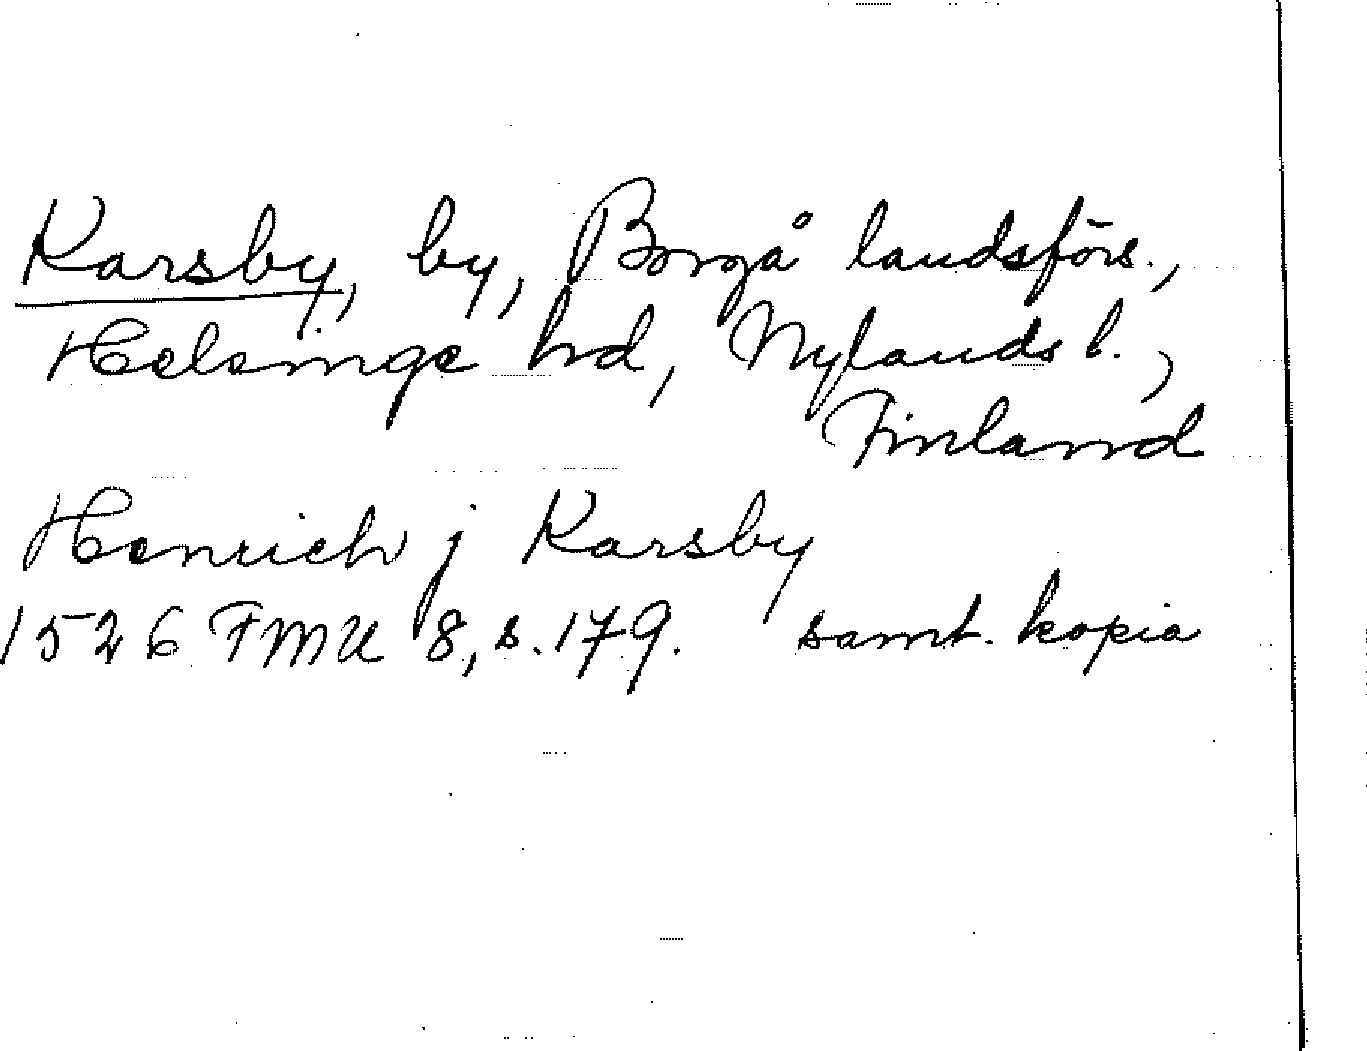 Karsby, by, Borgå landsförs.,
Helsinge hd, Nylands l.,
Finland
Henrich j Karsby
1526 FMU 8, s. 179. samt. kopia